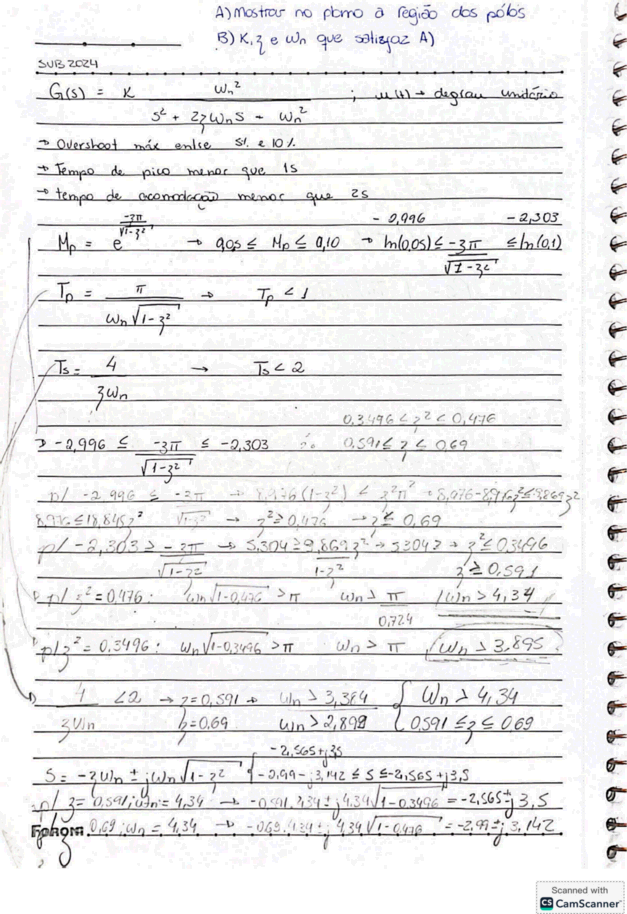 A) Mostrar no plano a região dos pólos
B) K, ζ e ωn que satisfaz A)
SUB 2024
G(s) = K ωn² / s² + 2ζωns + ωn² ; u(t) → degrau unitário
→ Overshoot máx entre 5% e 10%
→ Tempo de pico menor que 1s
→ tempo de acomodação menor que 2s
-0,996 -2,303
Mp = e^(-ζπ/√1-ζ²) → 0,05 ≤ Mp ≤ 0,10 → ln(0,05) ≤ -ζπ/√1-ζ² ≤ ln(0,1)
Tp = π / ωn√1-ζ² → Tp < 1
Ts = 4 / ζωn → Ts < 2
0,3496 < ζ² < 0,476
→ -2,996 ≤ -ζπ/√1-ζ² ≤ -2,303 ∴ 0,591 ≤ ζ ≤ 0,69
p/ -2,996 ≤ -ζπ/√1-ζ² → 8,976(1-ζ²) ≤ ζ²π² → 8,976-8,976ζ² ≤ 9,869ζ²
8,976 ≤ 18,845ζ² → ζ² ≥ 0,476 → ζ ≤ 0,69
p/ -2,303 ≥ -ζπ/√1-ζ² → 5,304 ≥ 9,869ζ²/1-ζ² → 5304 ≥ → ζ² ≤ 0,3496
ζ ≥ 0,591
p/ ζ² = 0,476: ωn√1-0,476 > π ωn > π/0,724 ωn > 4,34
p/ ζ² = 0,3496: ωn√1-0,3496 > π ωn > π ωn > 3,895
4/ζωn < 2 → ζ = 0,591 → ωn > 3,384 { ωn > 4,34
ζ = 0.69 ωn > 2,899 0,591 ≤ ζ ≤ 0,69
-2,565+j35
S = -ζωn ± jωn√1-ζ² { -2,99-j3,142 ≤ S ≤ -2,565+j3,5
p/ ζ = 0,591; ωn = 4,34 → -0,591.4,34 ± j4,34√1-0,3496 = -2,565±j3,5
Foroni 0,69; ωn = 4,34 → -0,69.4,34 ± j 4,34√1-0,476 = -2,99±j3,142
p/ζ
Scanned with
CS CamScanner